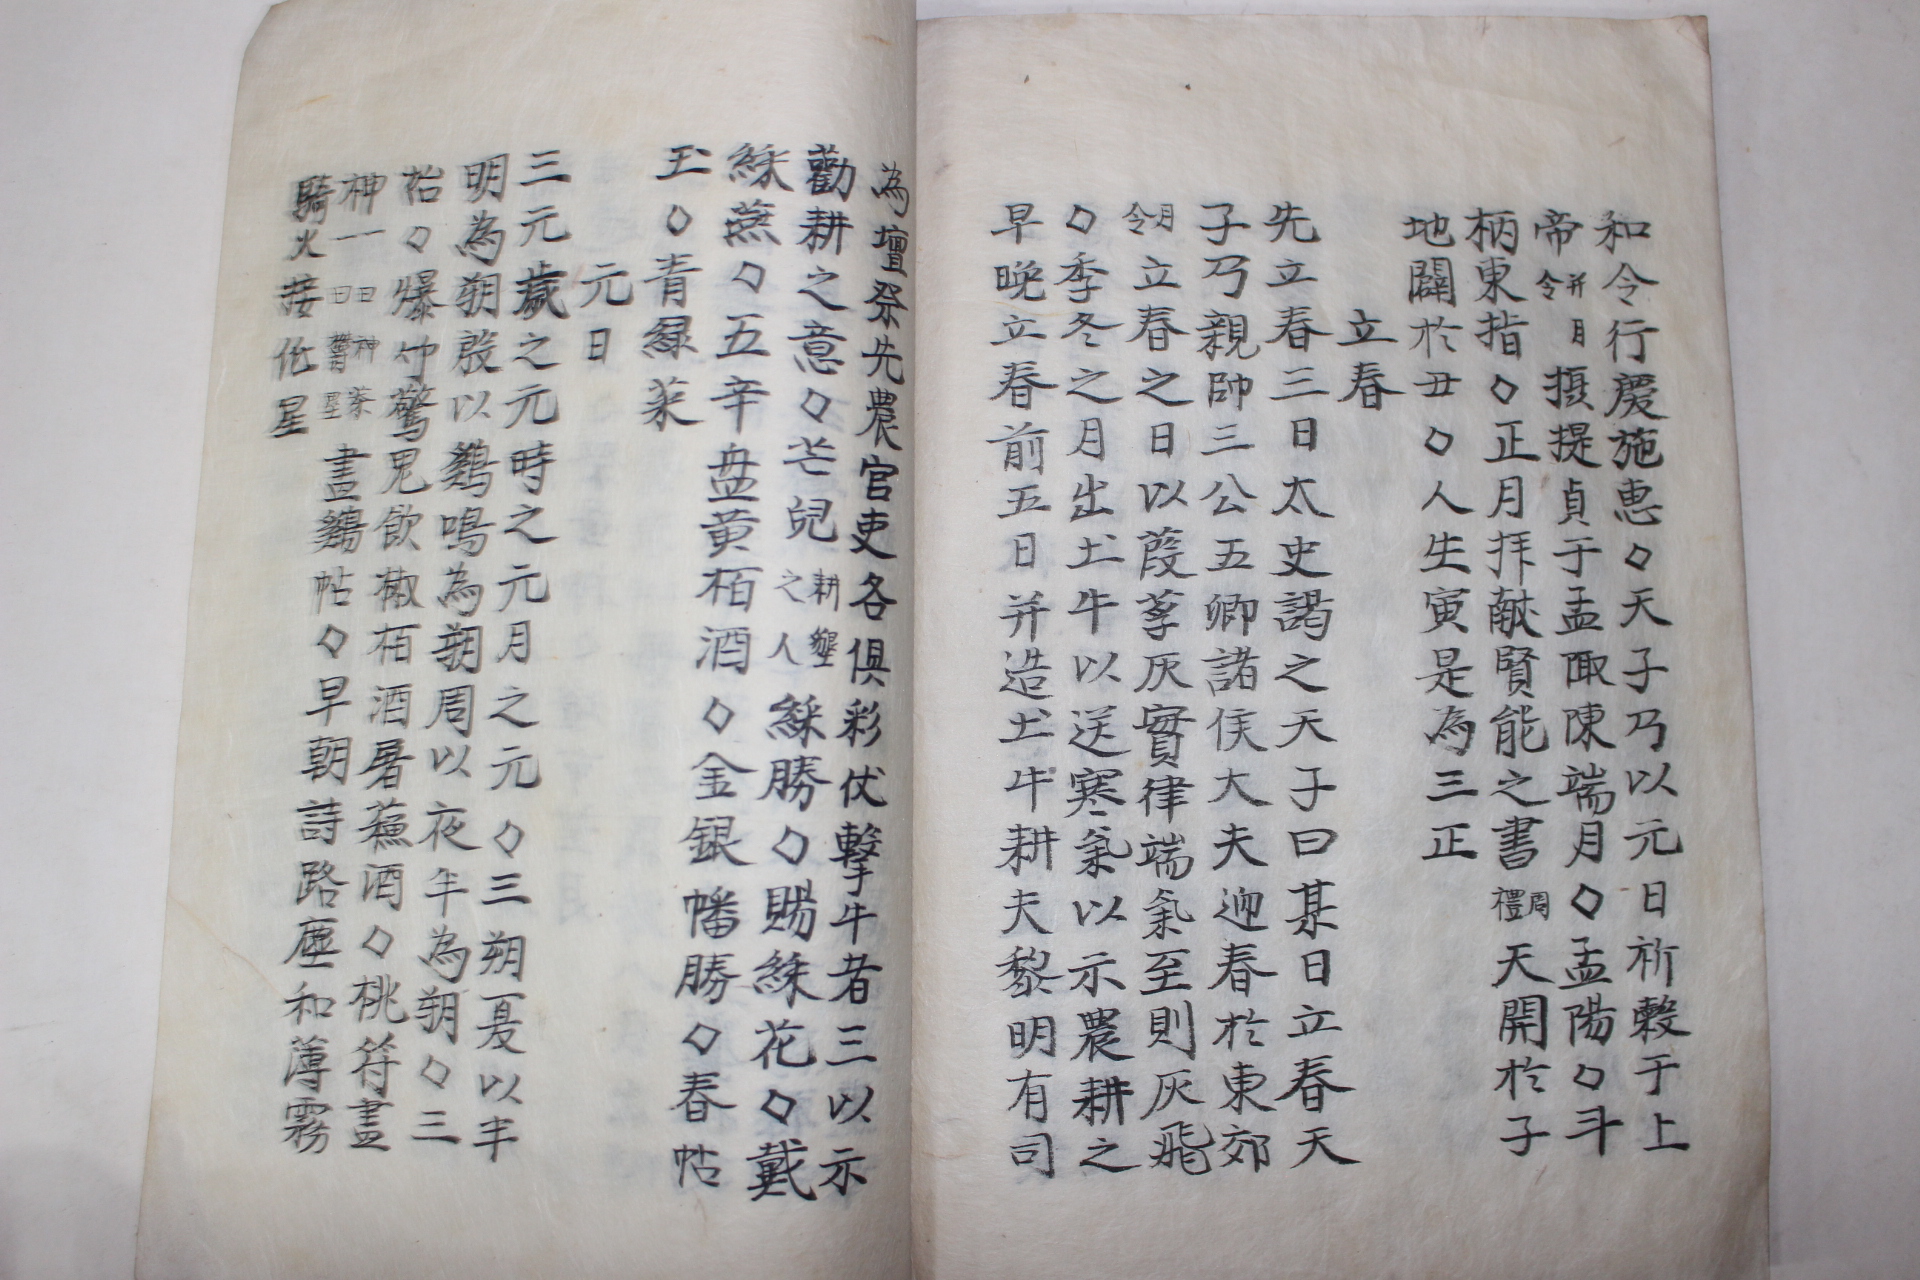 和令行慶施惠◇天子乃以元日祈穀于上
帝月令并攝提貞于孟陬陳端月◇孟陽◇斗
柄東指◇正月拜獻賢能之書周禮天開於子
地闢於丑◇人生寅是為三正
立春
先立春三日太史謁之天子曰某日立春天
子乃親帥三公五卿諸侯大夫迎春於東郊
月令立春之日以葭莩灰實律端氣至則灰飛
◇季冬之月出土牛以送寒氣以示農耕之
早晚立春前五日并造土牛耕夫黎明有司
為壇祭先農官吏各俱彩仗擊牛者三以示
勸耕之意◇芒兒耕墾之人綵勝◇賜綵花◇戴
綵燕◇五辛盘黃栢酒◇金銀幡勝◇春帖
玉◇青緑菜
元日
三元歲之元時之元月之元◇三朔夏以半
明為朔殷以鷄鳴為朔周以夜半為朔◇三
始◇爆竹驚鬼飲椒栢酒屠蘓酒◇桃符畫
神一曰神荼一曰鬱壘畫鷄帖◇早朝詩路塵和薄霧
騎火接低星